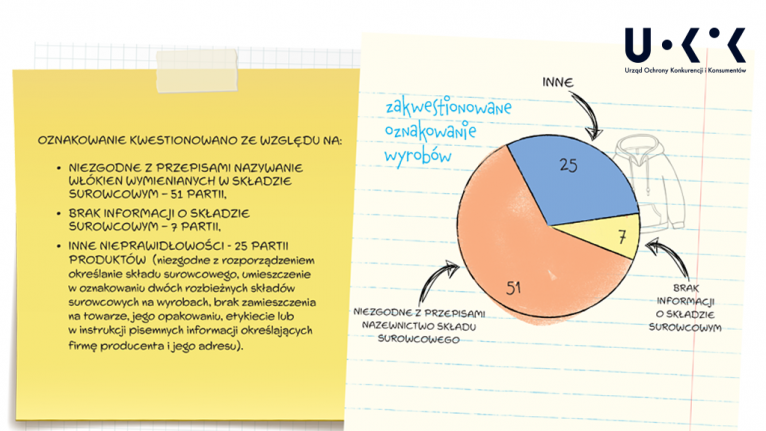 UOKiK
Urząd Ochrony Konkurencji i Konsumentów
OZNAKOWANIE KWESTIONOWANO ZE WZGLĘDU NA:
• NIEZGODNE Z PRZEPISAMI NAZYWANIE
WŁÓKIEN WYMIENIANYCH W SKŁADZIE
SUROWCOWYM – 51 PARTII,
• BRAK INFORMACJI O SKŁADZIE
SUROWCOWYM – 7 PARTII,
• INNE NIEPRAWIDŁOWOŚCI - 25 PARTII
PRODUKTÓW (niezgodne z rozporządzeniem
określanie składu surowcowego, umieszczenie
w oznakowaniu dwóch rozbieżnych składów
surowcowych na wyrobach, brak zamieszczenia
na towarze, jego opakowaniu, etykiecie lub
w instrukcji pisemnych informacji określających
firmę producenta i jego adresu).
zakwestionowane
oznakowanie
wyrobów
INNE
25
7
51
NIEZGODNE Z PRZEPISAMI
NAZEWNICTWO SKŁADU
SUROWCOWEGO
BRAK
INFORMACJI
O SKŁADZIE
SUROWCOWYM